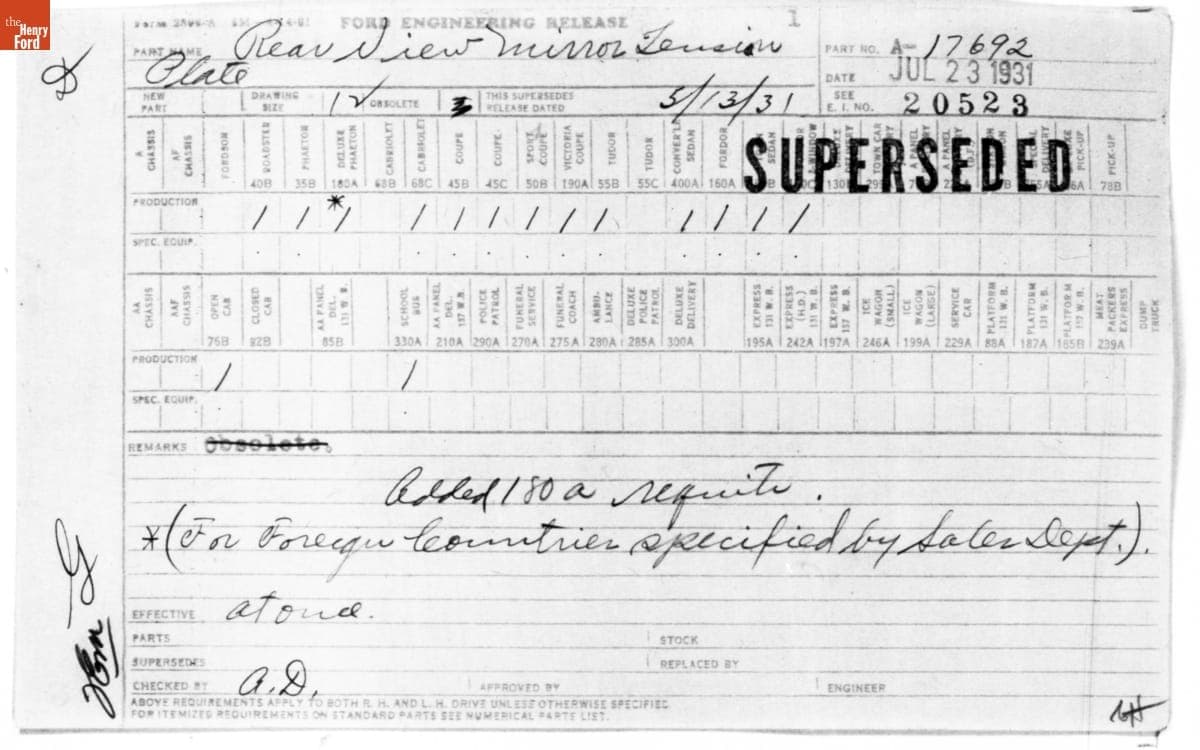 the Henry Ford
FORD ENGINEERING RELEASE 1
PART NAME Rear View Mirror Tension Plate
PART NO. A-17692
DATE JUL 23 1931
NEW PART DRAWING SIZE 12 OBSOLETE THIS SUPERSEDES RELEASE DATED 5/13/31
SEE E. I. NO. 20523
SUPERSEDED
A CHASSIS AF CHASSIS FORDSON ROADSTER PHAETON DELUXE PHAETON CABRIOLET CABRIOLET COUPE COUPE SPORT COUPE VICTORIA COUPE TUDOR TUDOR CONVER'L SEDAN FORDOR SEDAN TOWN CAR A PANEL A PANEL DELIVERY PICK-UP PICK-UP
40B 35B 180A 68B 68C 45B 45C 50B 190A 55B 55C 400A 160A 78B
PRODUCTION / / *
/ / / / / / / / / / /
SPEC. EQUIP.
AA CHASSIS AF CHASSIS OPEN CAB CLOSED CAB AA PANEL DEL. 131 W. B. SCHOOL BUS AA PANEL DEL. 157 W.B. POLICE PATROL FUNERAL SERVICE FUNERAL COACH AMBULANCE DELUXE POLICE PATROL DELUXE DELIVERY EXPRESS 131 W. B. EXPRESS (H.D.) 131 W. B. EXPRESS 157 W. B. ICE WAGON (SMALL) ICE WAGON (LARGE) SERVICE CAR PLATFORM 131 W. B. PLATFORM 131 W. B. PLATFORM 157 W. B. MEAT PACKERS EXPRESS DUMP TRUCK
76B 82B 85B 330A 210A 290A 270A 275A 280A 285A 300A 195A 242A 197A 246A 199A 229A 88A 187A 185B 239A
PRODUCTION / /
SPEC. EQUIP.
REMARKS Obsolete.
Added 180a requite.
*(For Foreign Countries specified by Sales Dept.).
EFFECTIVE at once.
PARTS STOCK
SUPERSEDES REPLACED BY
CHECKED BY A.D. APPROVED BY ENGINEER
ABOVE REQUIREMENTS APPLY TO BOTH R. H. AND L. H. DRIVE UNLESS OTHERWISE SPECIFIED
FOR ITEMIZED REQUIREMENTS ON STANDARD PARTS SEE NUMERICAL PARTS LIST.